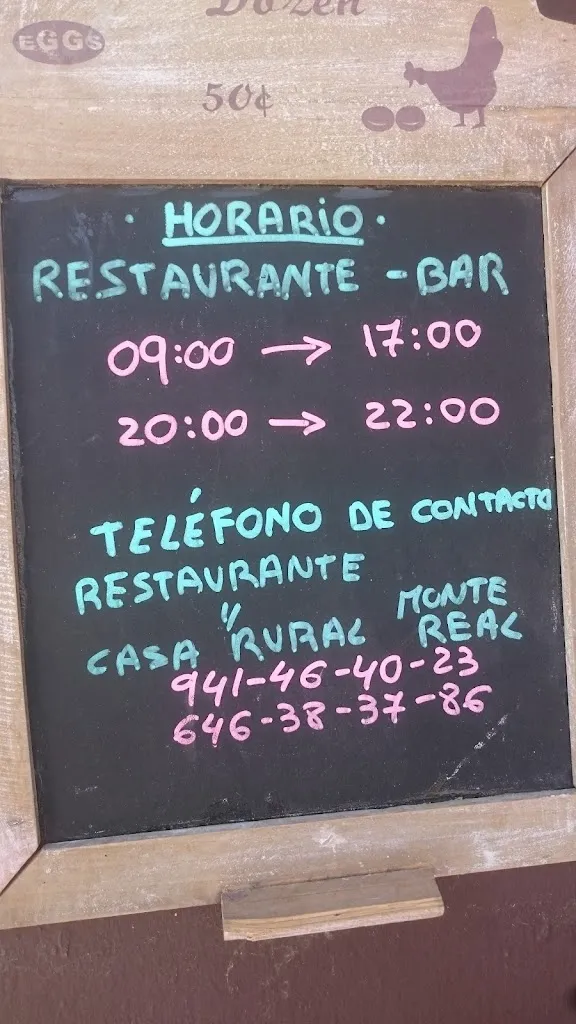 Dozen
EGGS
50¢
· HORARIO ·
RESTAURANTE - BAR
09:00 → 17:00
20:00 → 22:00
TELÉFONO DE CONTACTO
RESTAURANTE
"
CASA RURAL MONTE REAL
941-46-40-23
646-38-37-86